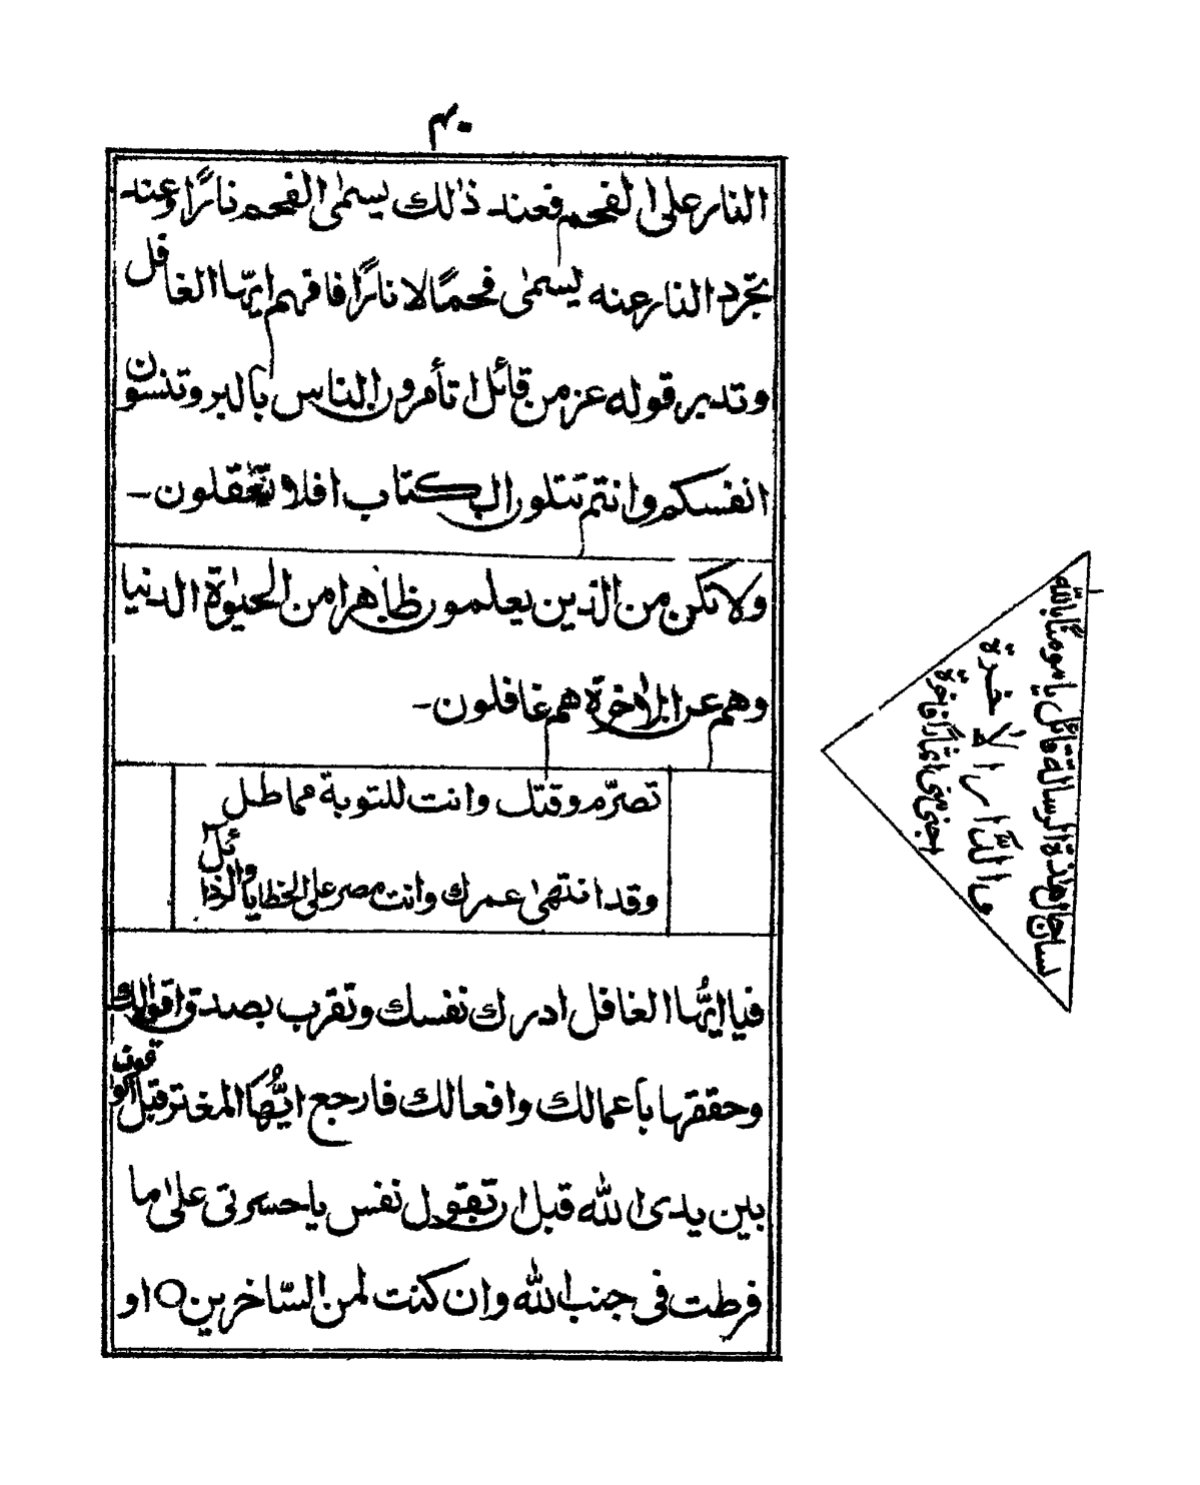 ٤٠
النار على الفحم فعند ذٰلك يسمٰى الفحم نارًا وعند
تجرد النار عنه ليسمٰى فحمًا لا نارًا فافهم ايّها الغافل
وتدبر قوله عز من قائل اتأمرون الناس بالبر وتنسون
انفسكم وانتم تتلون الكتاب افلا تعقلون ـ
ولا تكن من الذين يعلمون ظاهرا من الحيٰوة الدنيا
وهم عن الاٰخرة هم غافلون ـ
تصرّم وقتك وانت للتوبة مماطل
وقد انتهٰى عمرك وانت مصر على الخطايا والرذائل
فيا ايّها الغافل ادرك نفسك وتقرب بصدق اقوالك
وحققها بأعمالك وافعالك فارجع ايُّها المغتر قبل الوقوف
بين يدى الله قبل ان تقول نفس ياحسرتى علٰى ما
فرطت فى جنب الله وان كنت لمن السّاخرين ○ او
لسان حال هذه الرسالة قائل يا مومنًا بالله
والدّار الاٰخرة